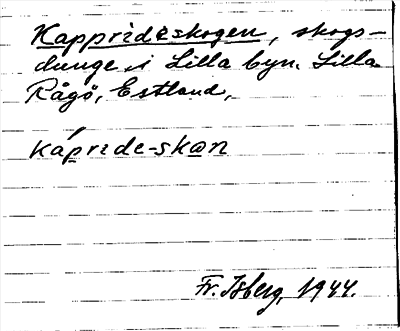 Kappridèskogen, skogs-
dunge i Lilla byn. Lilla
Rågö, Estland.
káprɪde-skɷn
Fr. Isberg, 1944.